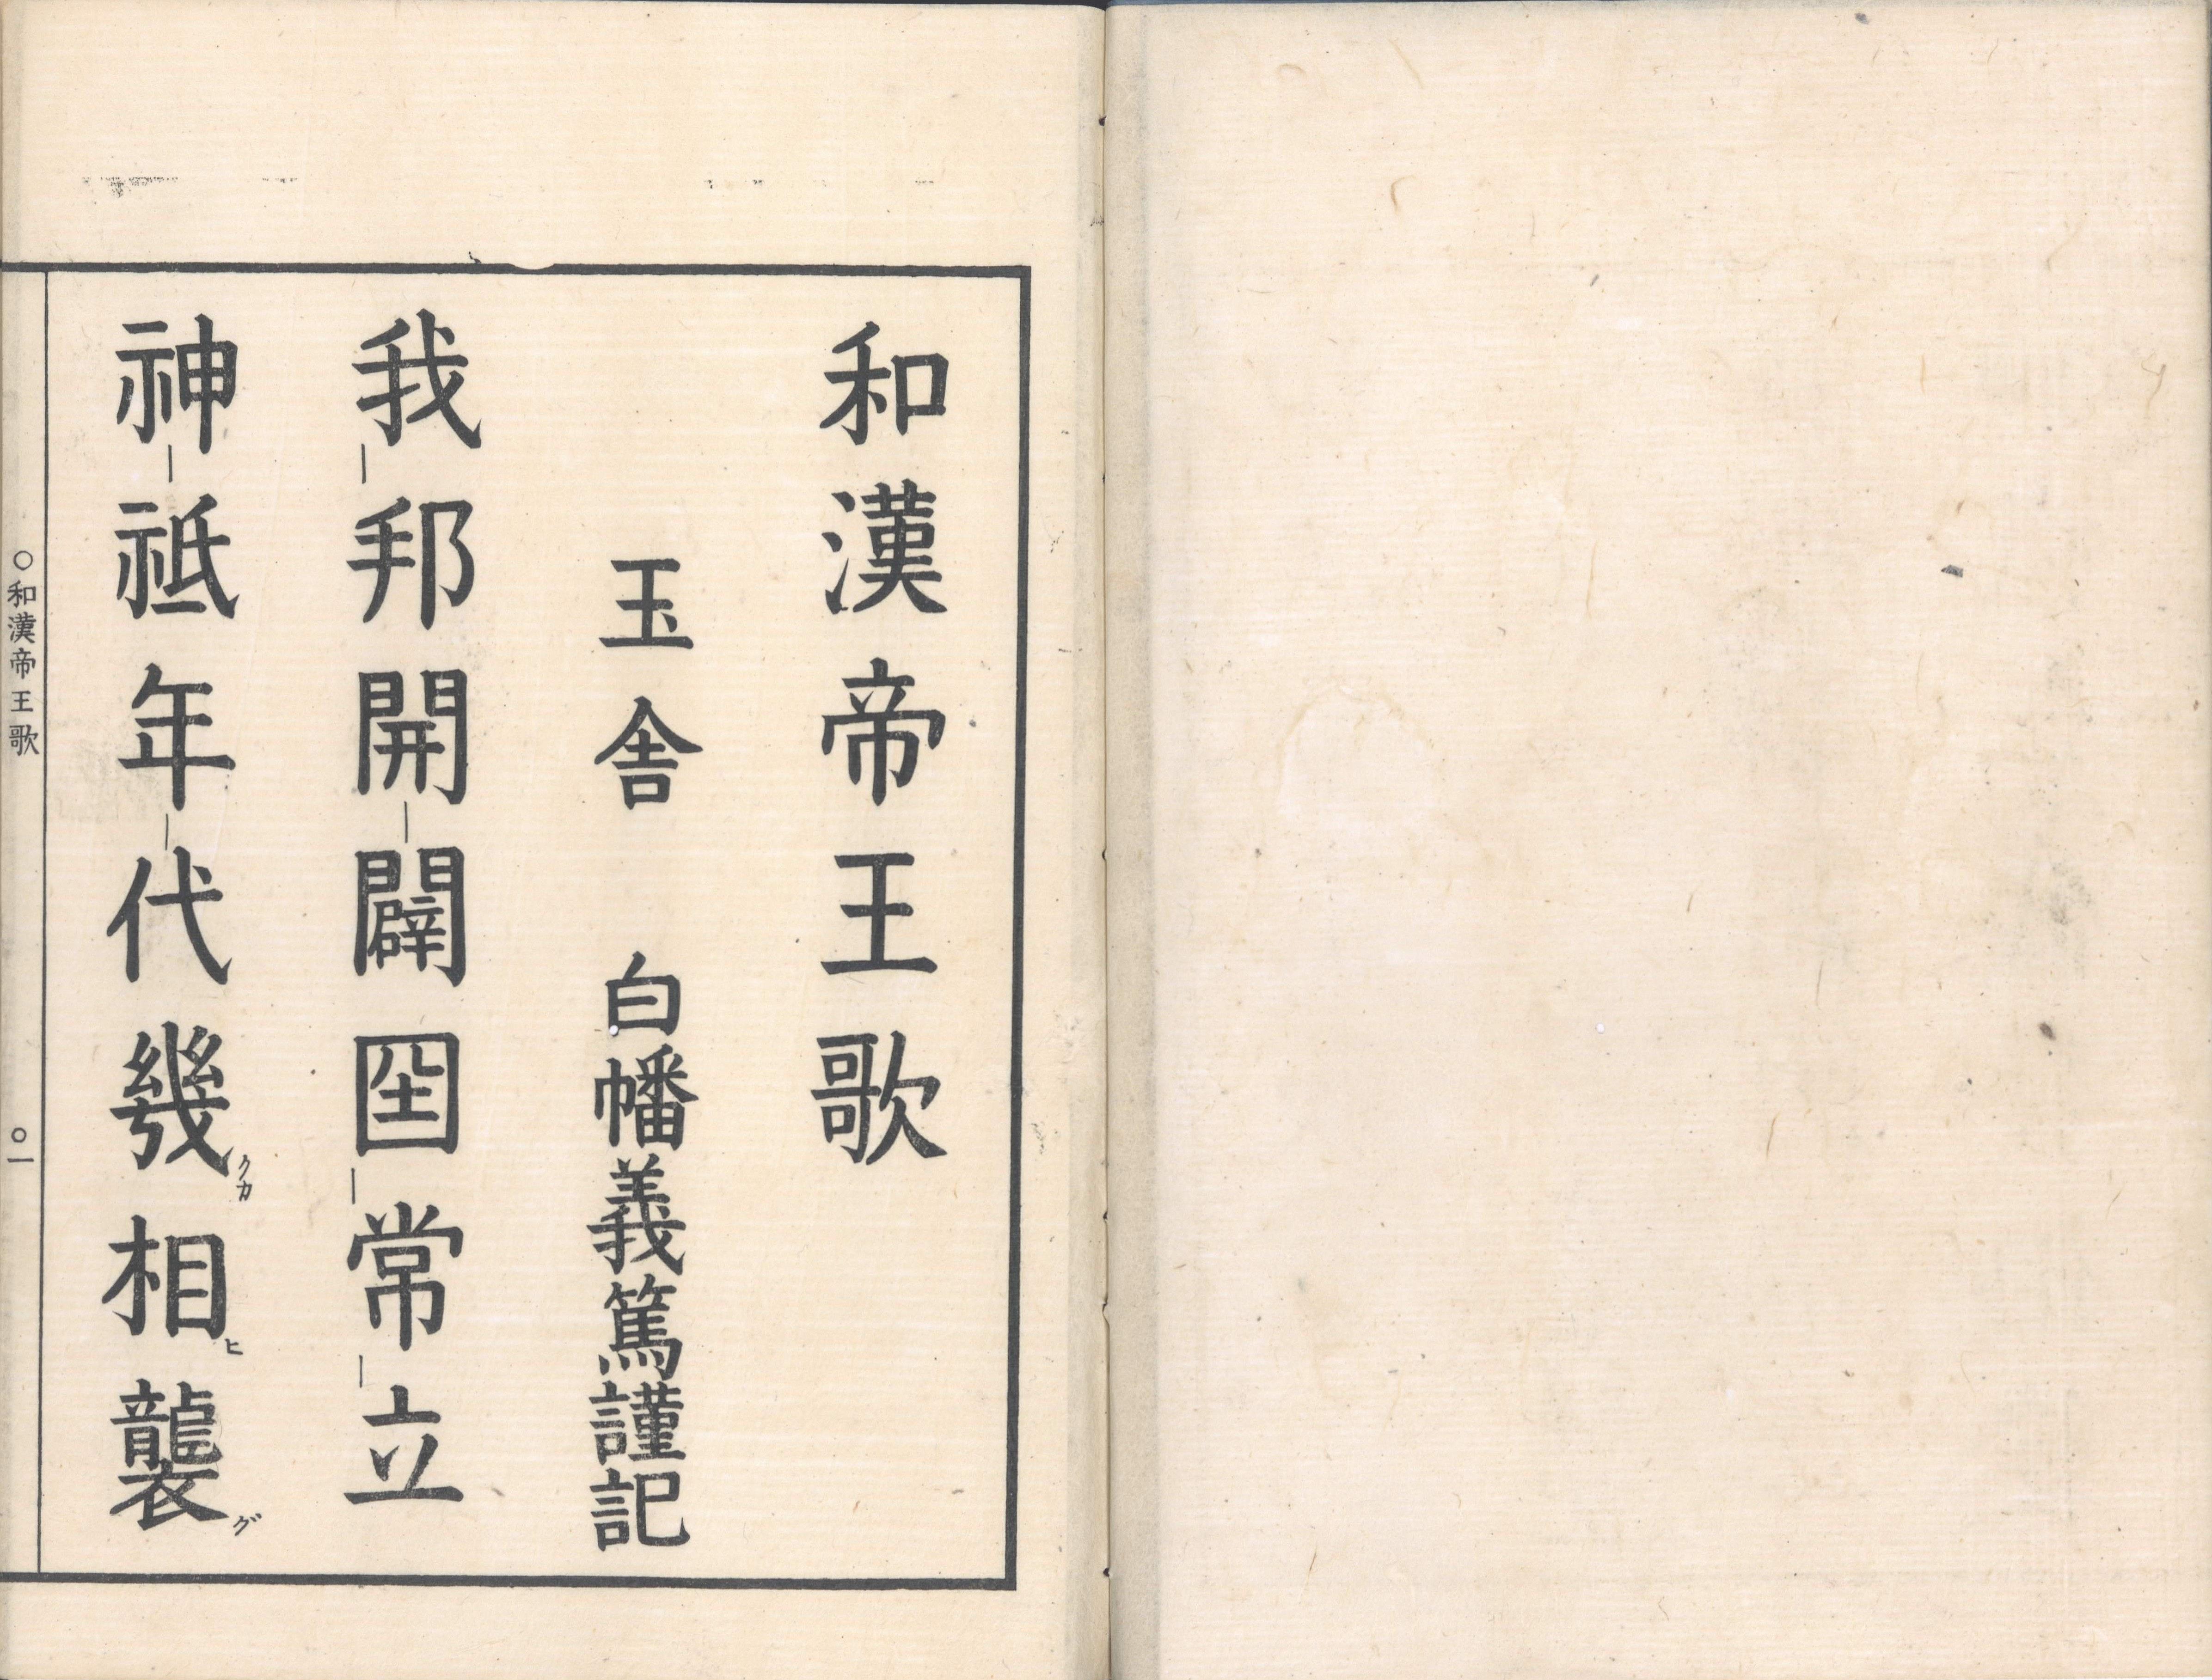 和漢帝王歌
玉舎　白幡義篤謹記
我邦開闢囶常立
神祗年代幾クカ相ヒ襲グ
○和漢帝王歌
○一